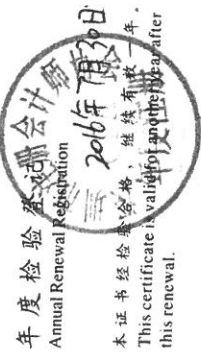 年度检验登记
Annual Renewal Registration
2016年7月30日
本证书经检验合格，继续有效一年。
This certificate is valid for another year after
this renewal.